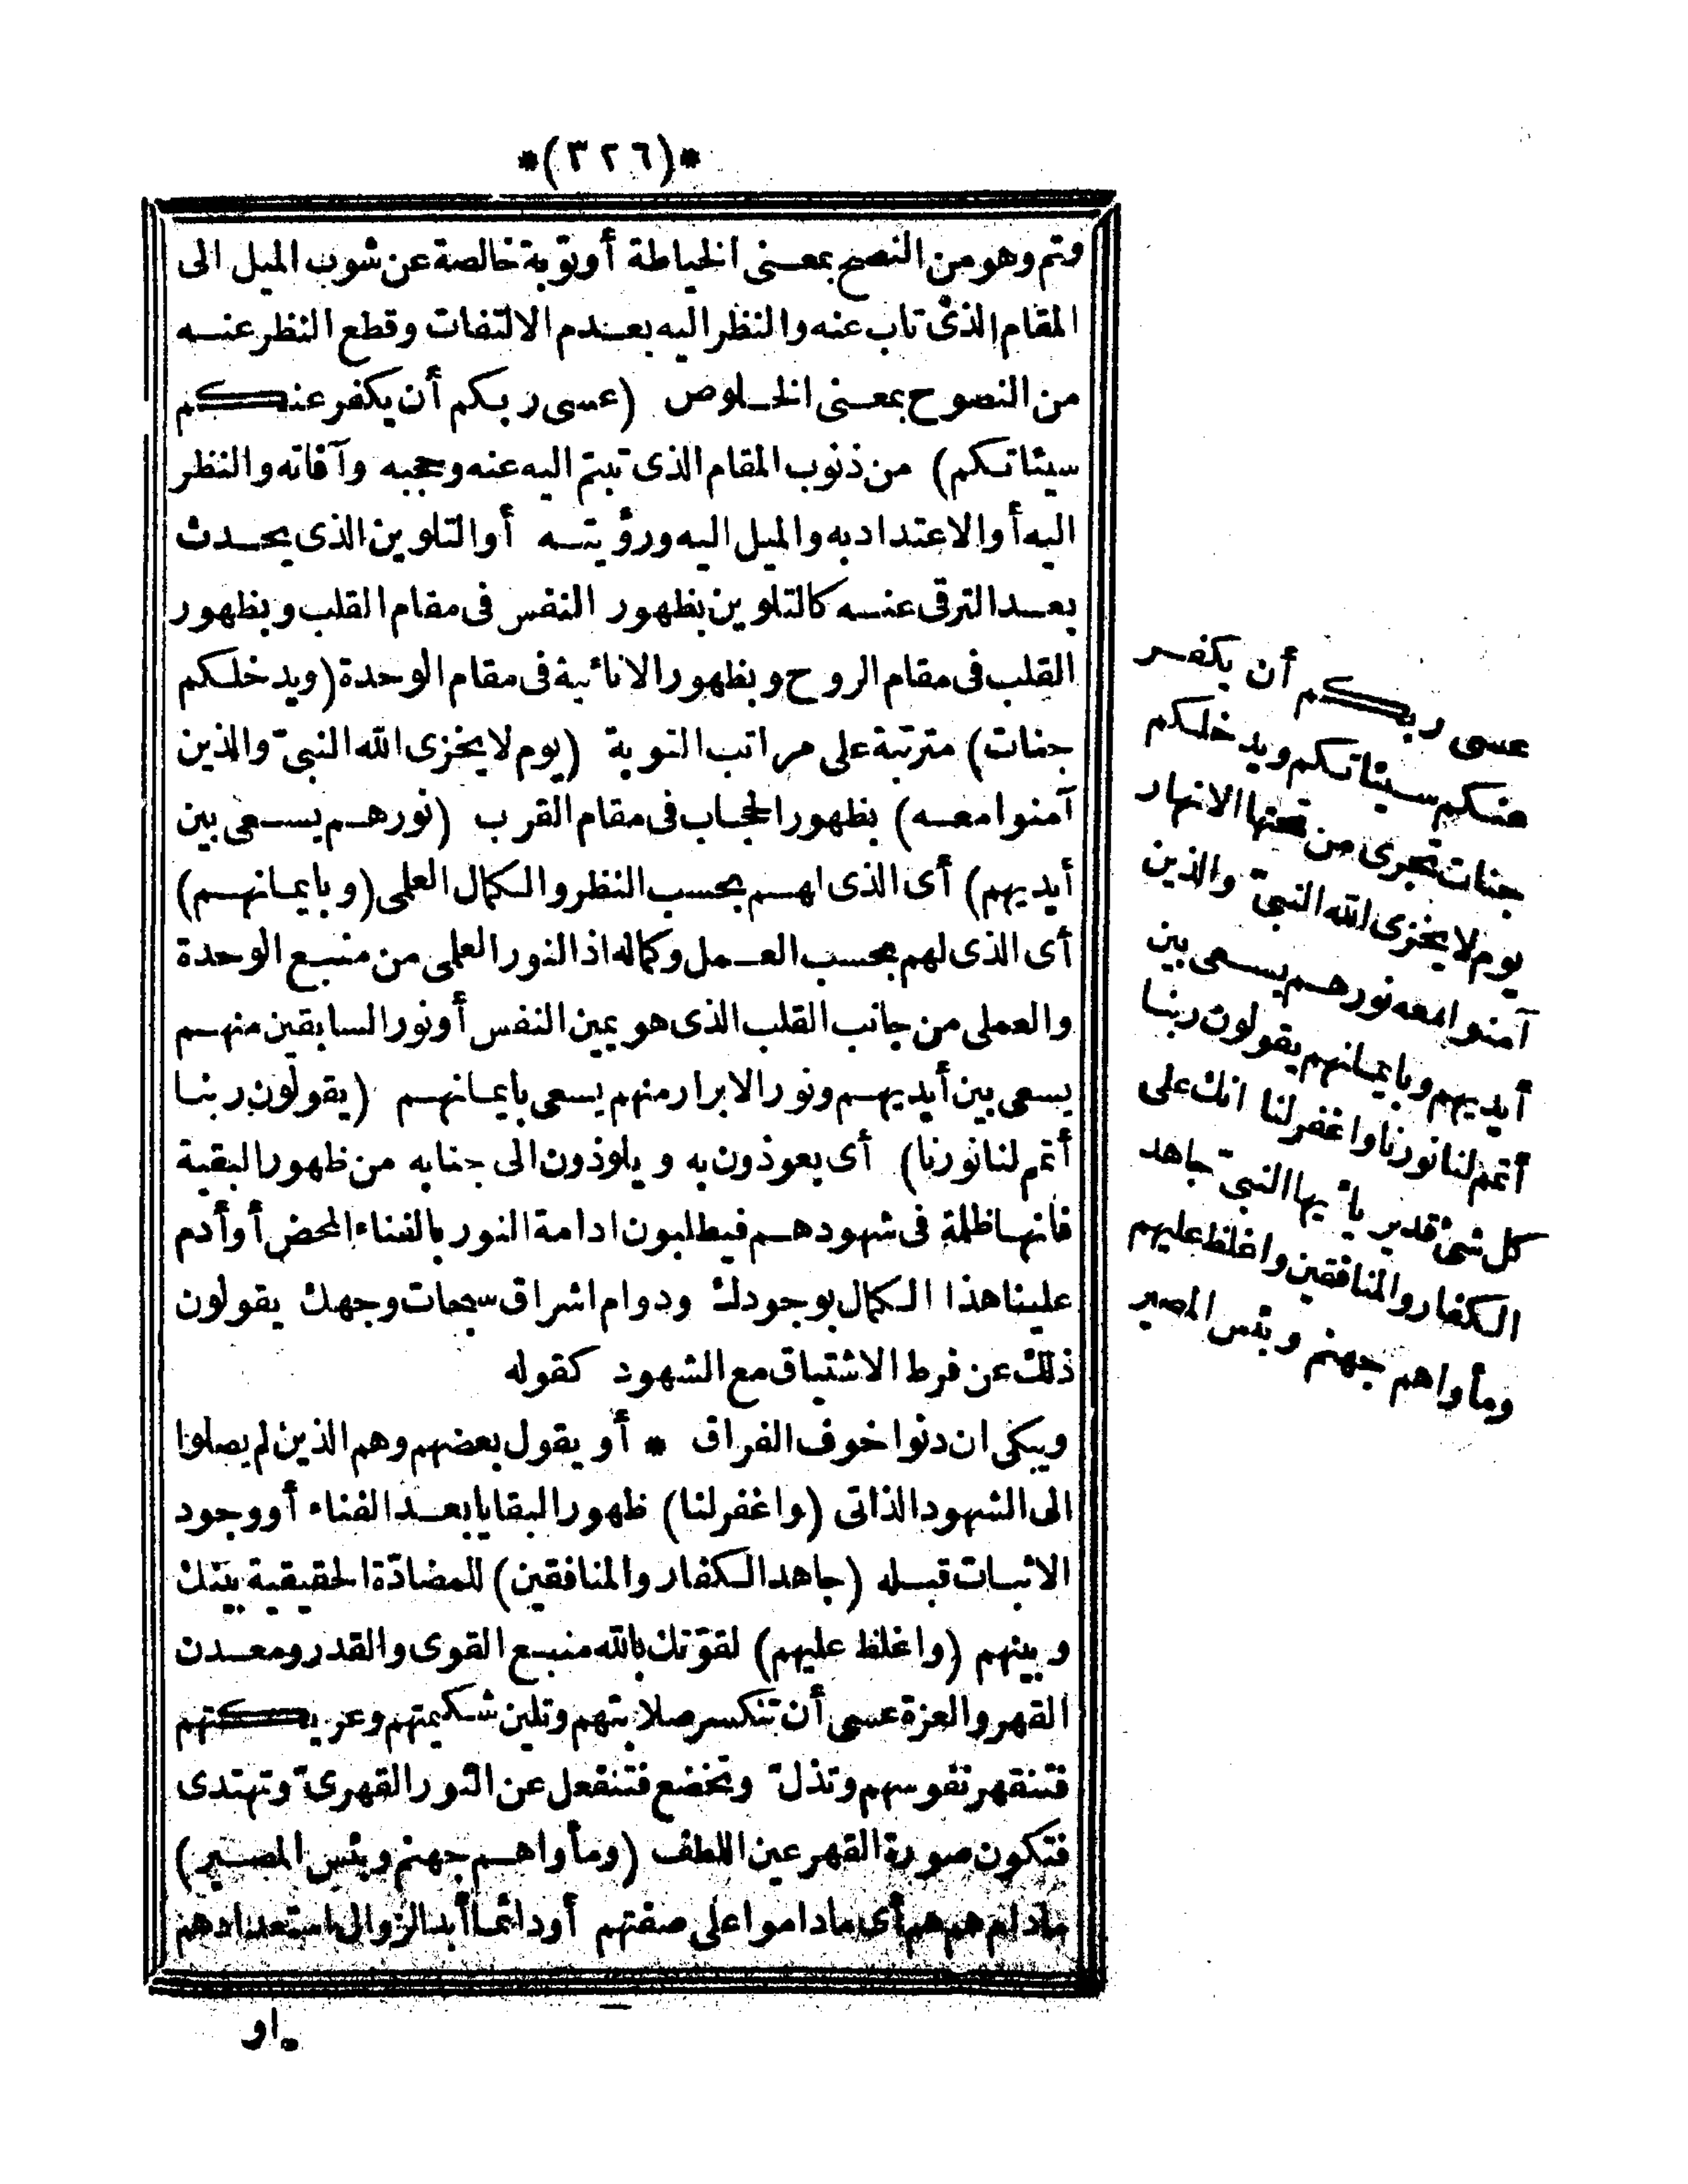 *(٣٢٦)*
وتم وهو من النصح بمعنى الخياطة أو توبة خالصة عن شوب الميل الى
المقام الذى تاب عنه والنظر اليه بعدم الالتفات وقطع النظر عنه
من النصوح بمعنى الخلوص (عسى ربكم أن يكفر عنكم
سيئاتكم) من ذنوب المقام الذى تبتم اليه عنه وحجبه وآفاته والنظر
اليه أو الاعتداد به والميل اليه ورؤيته أو التلوين الذى يحدث
بعد الترقى عنه كالتلوين بظهور النفس فى مقام القلب وبظهور
القلب فى مقام الروح وبظهور الانائية فى مقام الوحدة (ويدخلكم
جنات) مترتبة على مراتب التوبة (يوم لا يخزى الله النبىّ والذين
آمنوا معه) بظهور الحجاب فى مقام القرب (نورهم يسعى بين
أيديهم) أى الذى لهم بحسب النظر والكمال العلمى (وبايمانهم)
أى الذى لهم بحسب العمل وكماله اذ النور العلمى من منبع الوحدة
والعملى من جانب القلب الذى هو يمين النفس أو نور السابقين منهم
يسعى بين أيديهم ونور الابرار منهم يسعى بايمانهم (يقولون ربنا
أتمم لنا نورنا) أى يعوذون به ويلوذون الى جنابه من ظهور البقية
فانها ظلمة فى شهودهم فيطلبون ادامة النور بالفناء المحض أو أدم
علينا هذا الكمال بوجودك ودوام اشراق سبحات وجهك يقولون
ذلك عن فرط الاشتياق مع الشهود كقوله
ويبكى ان دنوا خوف الفراق * أو يقول بعضهم وهم الذين لم يصلوا
الى الشهود الذاتى (واغفر لنا) ظهور البقايا بعد الفناء أو وجود
الاثبات قبله (جاهد الكفار والمنافقين) للمضادّة الحقيقية بينك
وبينهم (واغلظ عليهم) لقوّتك بالله منبع القوى والقدر ومعدن
القهر والعزة عسى أن تنكسر صلابتهم وتلين شكيمتهم وعريكتهم
فتنقهر نفوسهم وتذلّ وتخضع فتنفعل عن النور القهرىّ وتهتدى
فتكون صورة القهر عين اللطف (ومأواهم جهنم وبئس المصير)
مادام هم هم أى ماداموا على صفتهم أو دائما أبدا لزوال استعدادهم
او
عسى ربكم أن يكفر
عنكم سيئاتكم ويدخلكم
جنات تجرى من تحتها الانهار
يوم لا يخزى الله النبىّ والذين
آمنوا معه نورهم يسعى بين
أيديهم وبايمانهم يقولون ربنا
أتمم لنا نورنا واغفر لنا انك على
كل شئ قدير يأيها النبىّ جاهد
الكفار والمنافقين واغلظ عليهم
ومأواهم جهنم وبئس المصير